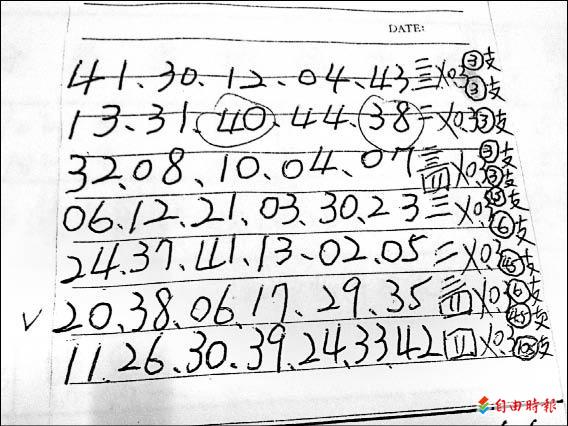 DATE:
41.30.12.04.43 二三 X0.3 ③支 ③支
13、31、40、44、38 二 X0.3 ③支
32、08、10、04、07 三四 X0.3 ③支 ③支
06、12、21、03、30、23 三 X0.3 ⑥支
24、37、41、13、02、05 二 X0.3 支
20、38、06、17、29、35 三四 X0.3 ⑥支 支
11、26、30、39、24、33 42 四 X0.3 支
自由時報